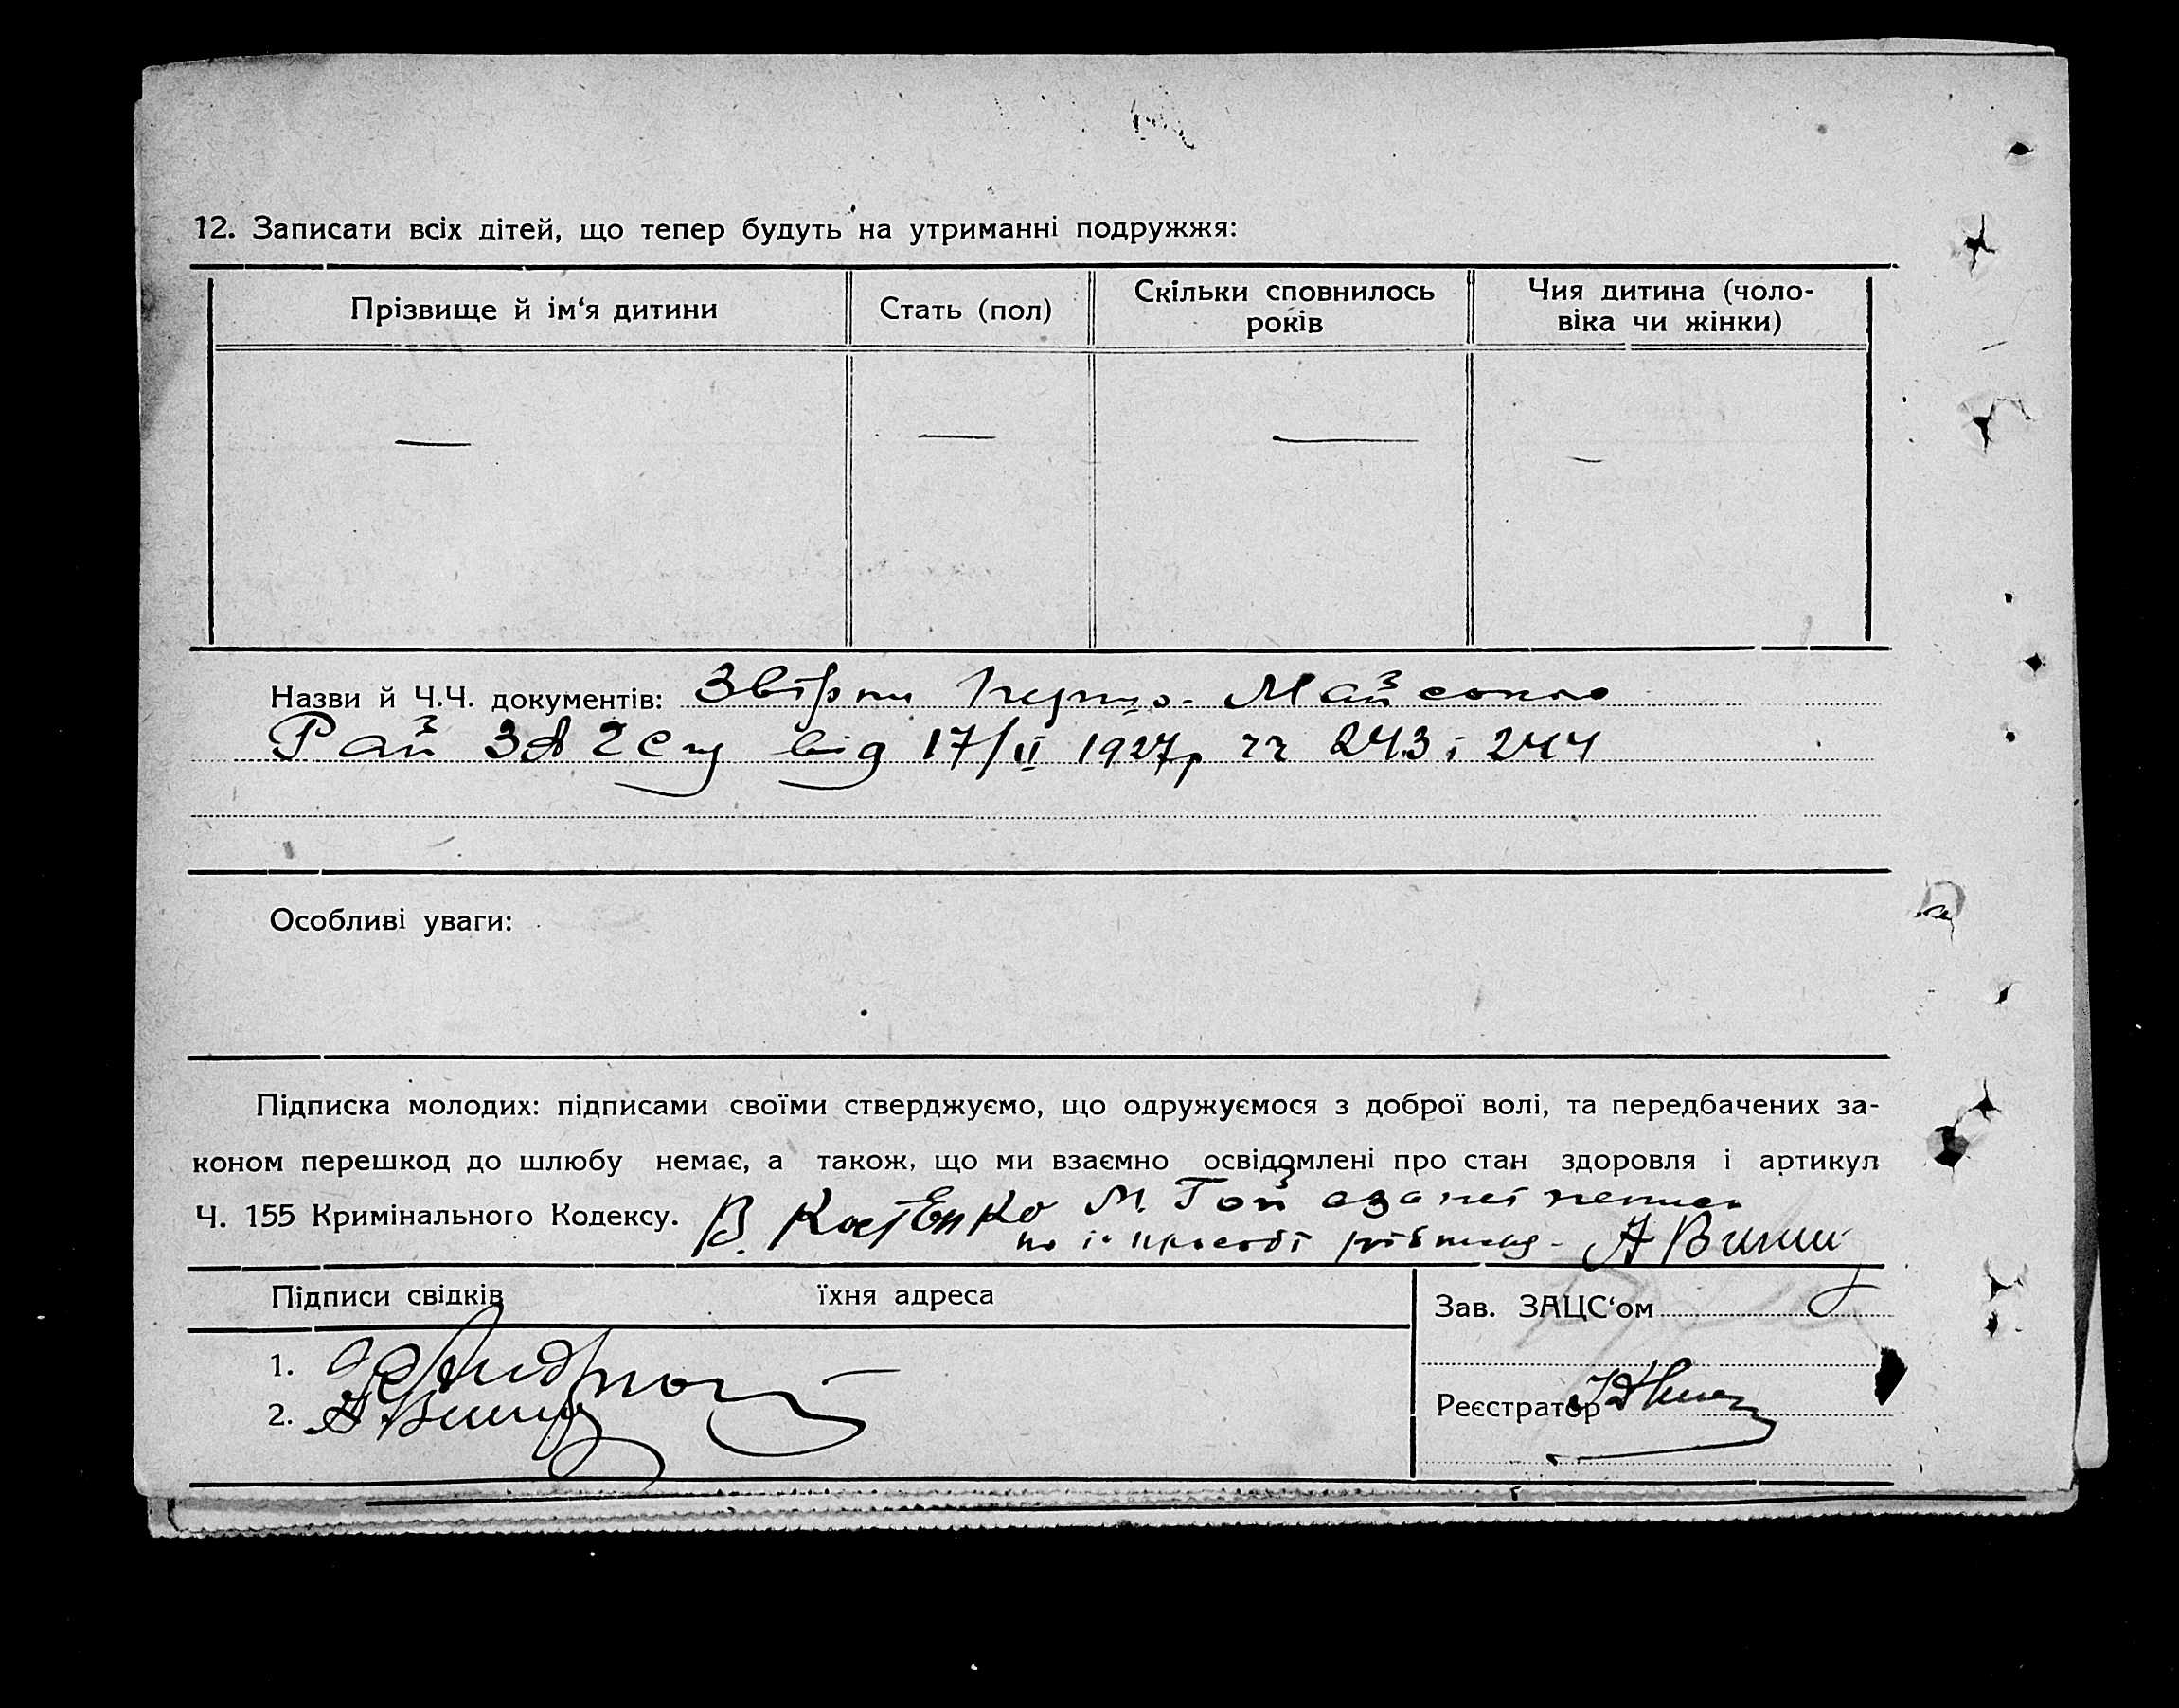 12. Записати всіх дітей, що тепер будуть на утриманні подружжя:
Прізвище й ім‘я дитини
Стать (пол)
Скільки сповнилось
років
Чия дитина (чоло-
віка чи жінки)
— — — —
Назви й Ч.Ч. документів: Май
Рай від 17/II 1927р чч 243 і 244
Особливі уваги:
Підписка молодих: підписами своїми стверджуємо, що одружуємося з доброї волі, та передбачених за-
коном перешкод до шлюбу немає, а також, що ми взаємно освідомлені про стан здоровля і артикул
Ч. 155 Кримінального Кодексу. В. Костенко М. Гой
по
Підписи свідків
їхня адреса
Зав. ЗАЦС‘ом
1.
2.
Реєстратор